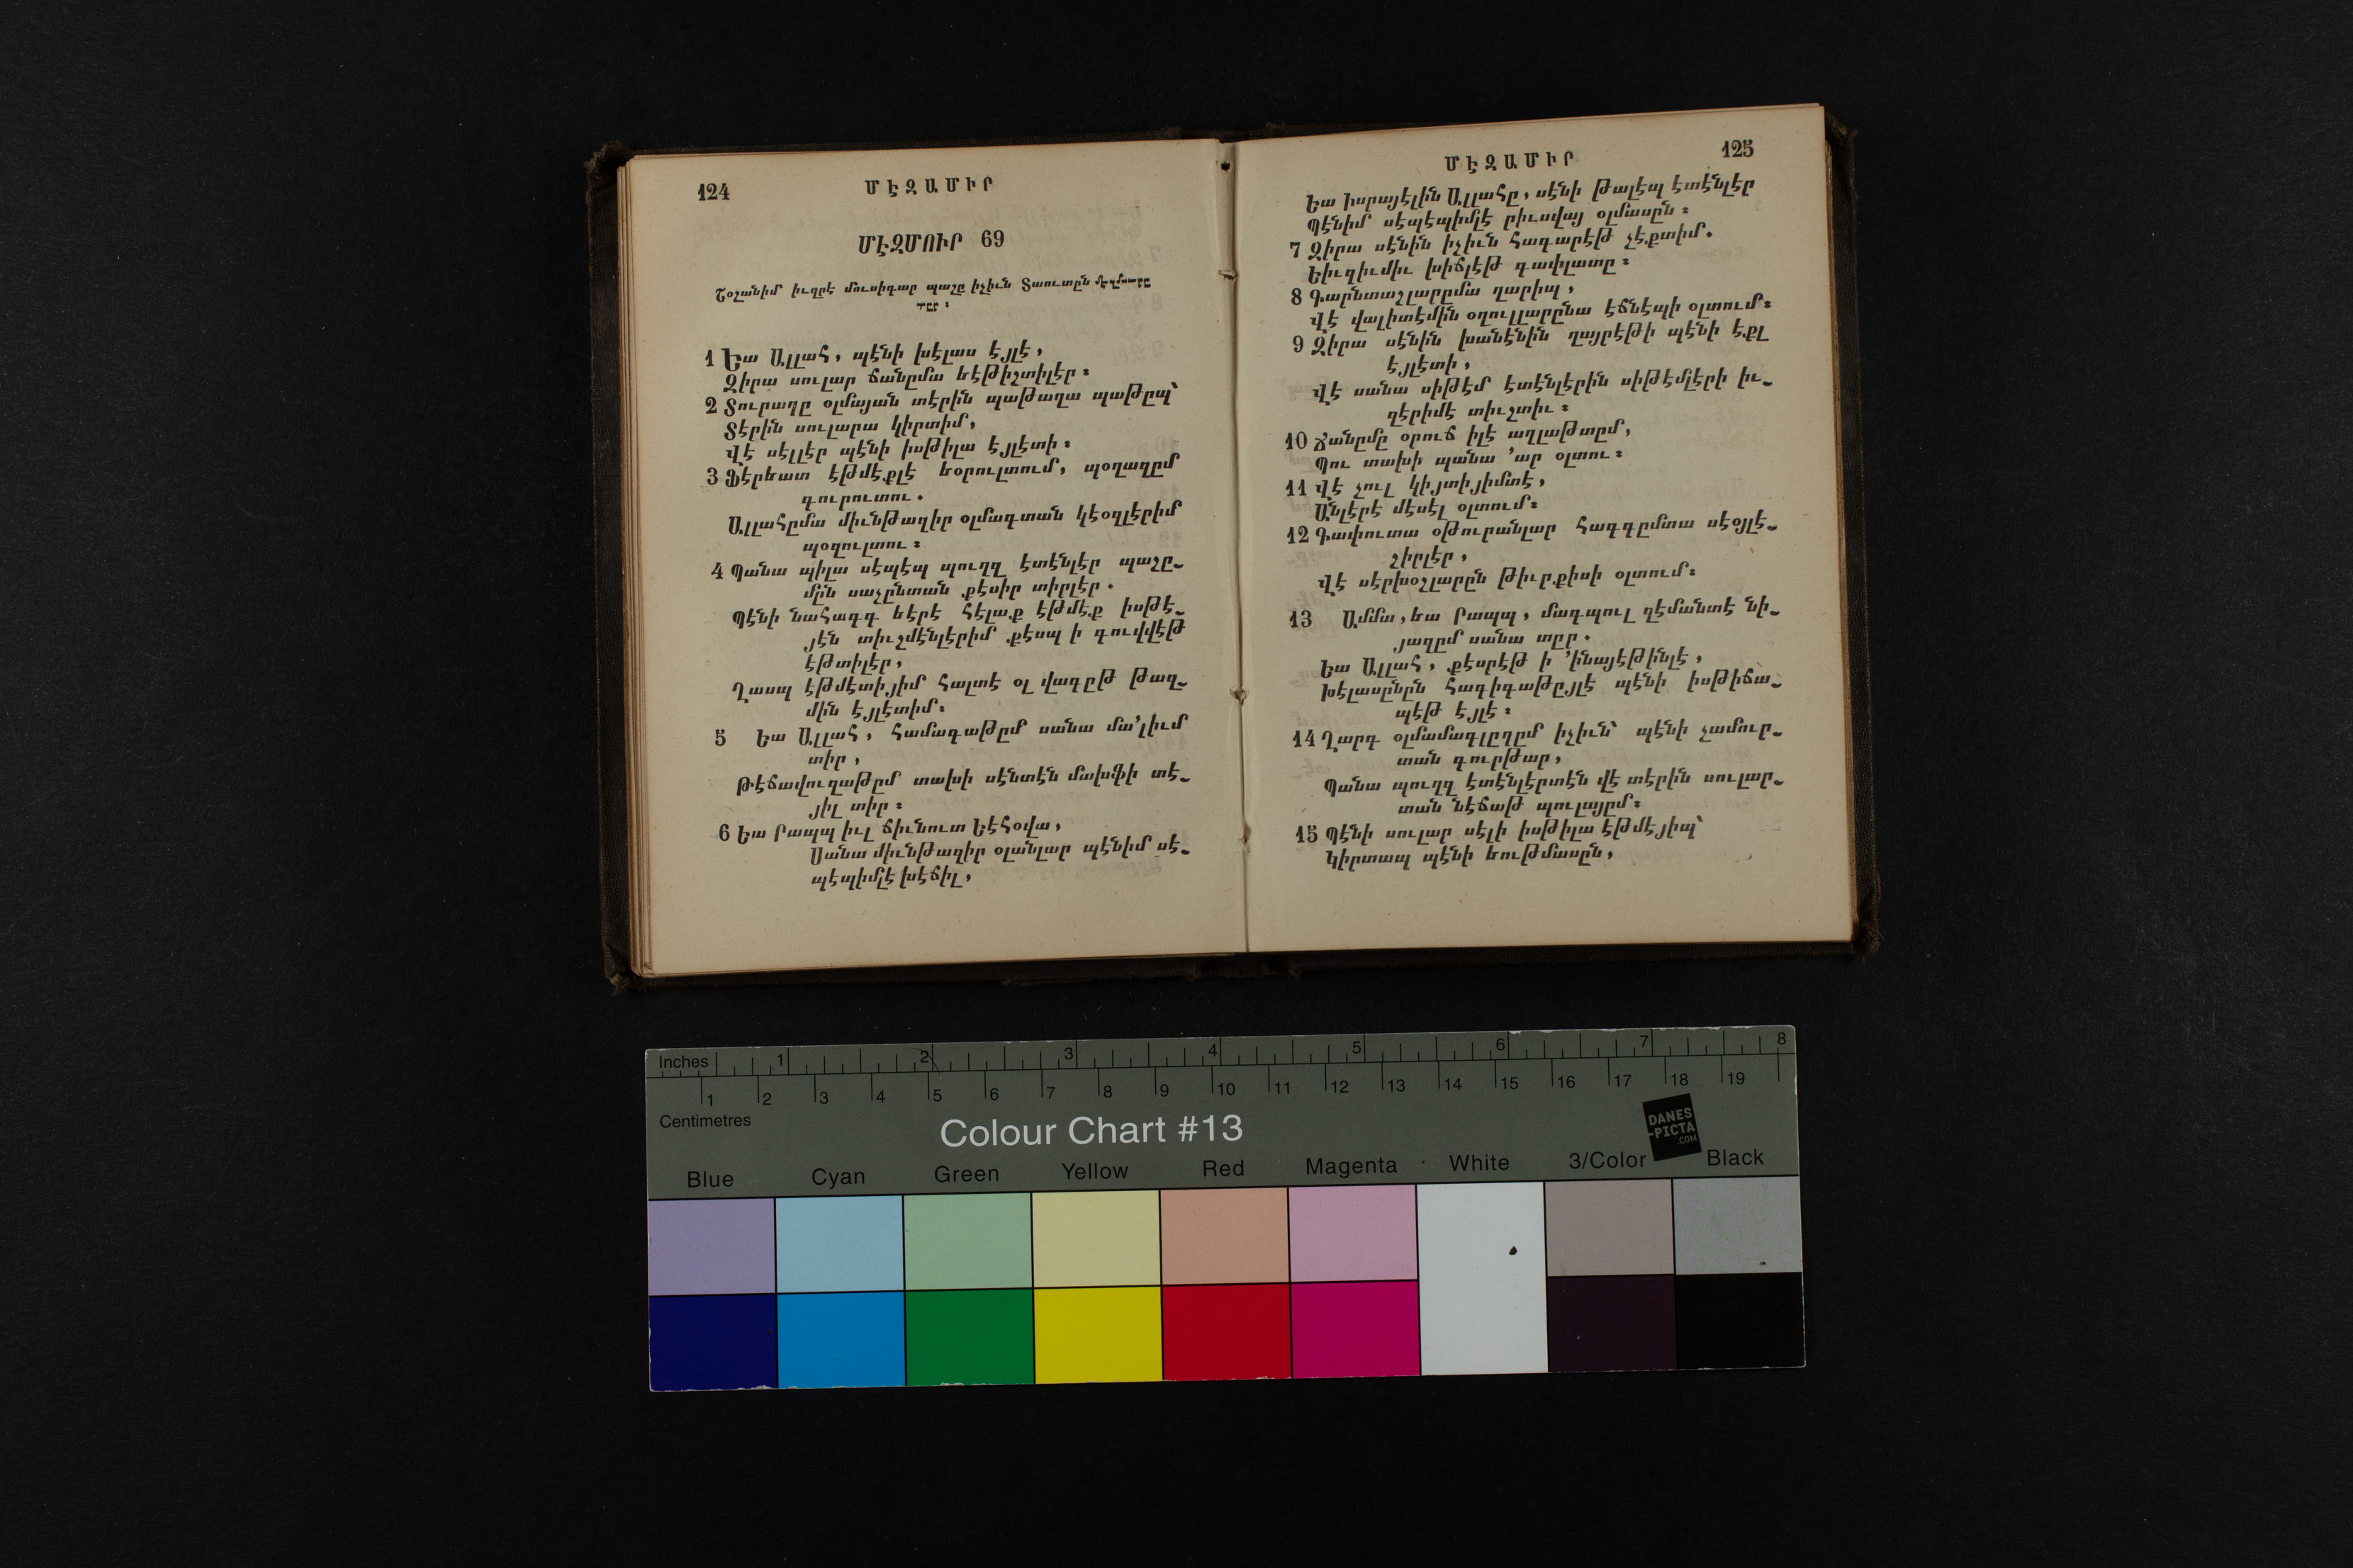 124
ՄԷԶԱՄԻՐ
ՄԷԶՄՈՒՐ 69
Շօշանիմ իւզրէ մուսիգար պաշը իչիւն Տաուտըն մէզմուրը
տըր ։
1 Եա Ալլահ, պէնի խէլաս էյլէ,
Զիրա սուլար ճանըմա եէթիշտիլէր ։
2 Տուրաղը օլմայան տէրին պաթաղա պաթըպ՝
Տէրին սուլարա կիրտիմ,
Վէ սէլլէր պէնի իսթիլա էյլէտի ։
3 Ֆէրեատ էթմէքլէ եօրուլտում, պօղազըմ
գուրուտու .
Ալլահըմա միւնթազիր օլմագտան կէօզլէրիմ
պօզուլտու ։
4 Պանա պիլա սէպէպ պուղզ էտէնլէր պաշը-
մըն սաչընտան քէսիր տիրլէր .
Պէնի նահագգ եէրէ հէլաք էթմէք իսթէ-
յէն տիւշմէնլէրիմ քէսպ ի գուվվէթ
էթտիլէր,
Ղասպ էթմէտիյիմ հալտէ օլ վագըթ թազ-
մին էյլէտիմ ։
5 Եա Ալլահ, համագաթըմ սանա մա՚լիւմ
տիր,
Թէճավուզաթըմ տախի սէնտէն մախֆի տէ-
յիլ տիր ։
6 Եա Րապպ իւլ ճիւնուտ Եէհօվա,
Սանա միւնթազիր օլանլար պէնիմ սէ-
պէպիմլէ խէճիլ,
125
ՄԷԶԱՄԻՐ
Եա Իսրայէլին Ալլահը, սէնի թալէպ էտէնլէր
Պէնիմ սէպէպիմլէ րիւսվայ օլմասըն ։
7 Զիրա սէնին իչիւն հագարէթ չէքտիմ.
Եիւզիւմիւ խիճլէթ գափլատը ։
8 Գարնտաշլարըմա ղարիպ,
Վէ վալիտէմին օղուլլարընա էճնէպի օլտում ։
9 Զիրա սէնին խանէնին ղայրէթի պէնի էքլ
էյլէտի,
Վէ սանա սիթէմ էտէնլէրին սիթէմլէրի իւ-
զէրիմէ տիւշտիւ ։
10 Ճանըմը օրուճ իլէ աղլաթտըմ,
Պու տախի պանա ՚ար օլտու ։
11 Վէ չուլ կիյտիյիմտէ,
Անլէրէ մէսէլ օլտում ։
12 Գափուտա օթուրանլար հագգըմտա սէօյլէ-
շիրլէր,
Վէ սէրխօշլարըն թիւրքիսի օլտում ։
13 Ամմա, եա Րապպ, մագպուլ զէմանտէ նի-
յազըմ սանա տըր.
Եա Ալլահ, քէսրէթ ի ՚ինայէթինլէ,
Խէլասընըն հագիգաթըյլէ պէնի իսթիճա-
պէթ էյլէ ։
14 Ղարդ օլմամագլըղըմ իչիւն՝ պէնի չամուր-
տան գուրթար,
Պանա պուղզ էտէնլէրտէն վէ տէրին սուլար-
տան նէճաթ պուլայըմ ։
15 Պէնի սուլար սէլի իսթիլա էթմէյիպ՝
Կիրտապ պէնի եութմասըն,
Inches 1 2 3 4 5 6 7 8
1 2 3 4 5 6 7 8 9 10 11 12 13 14 15 16 17 18 19
Centimetres
Colour Chart #13
DANES
-PICTA
.COM
Blue Cyan Green Yellow Red Magenta White 3/Color Black